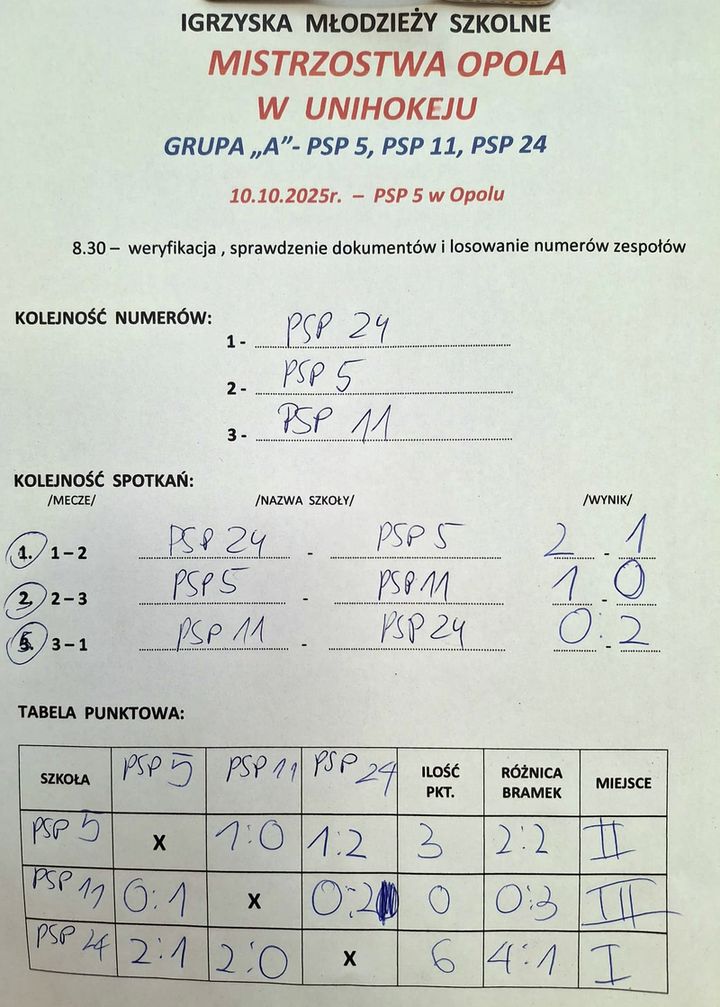 IGRZYSKA MŁODZIEŻY SZKOLNE
MISTRZOSTWA OPOLA
W UNIHOKEJU
GRUPA „A"- PSP 5, PSP 11, PSP 24
10.10.2025r. – PSP 5 w Opolu
8.30 – weryfikacja , sprawdzenie dokumentów i losowanie numerów zespołów
KOLEJNOŚĆ NUMERÓW:
1 - PSP 24
2 - PSP 5
3 - PSP 11
KOLEJNOŚĆ SPOTKAŃ:
/MECZE/ /NAZWA SZKOŁY/ /WYNIK/
1. 1 – 2 PSP 24 - PSP 5 2 - 1
2. 2 – 3 PSP 5 - PSP 11 1 - 0
3 – 1 PSP 11 - PSP 24 0 : - 2
TABELA PUNKTOWA:
SZKOŁA PSP 5 PSP 11 PSP 24 ILOŚĆ PKT. RÓŻNICA BRAMEK MIEJSCE
PSP 5 X 1:0 1:2 3 2:2 II
PSP 11 0:1 X 0:2 0 0:3 III
PSP 24 2:1 2:0 X 6 4:1 I